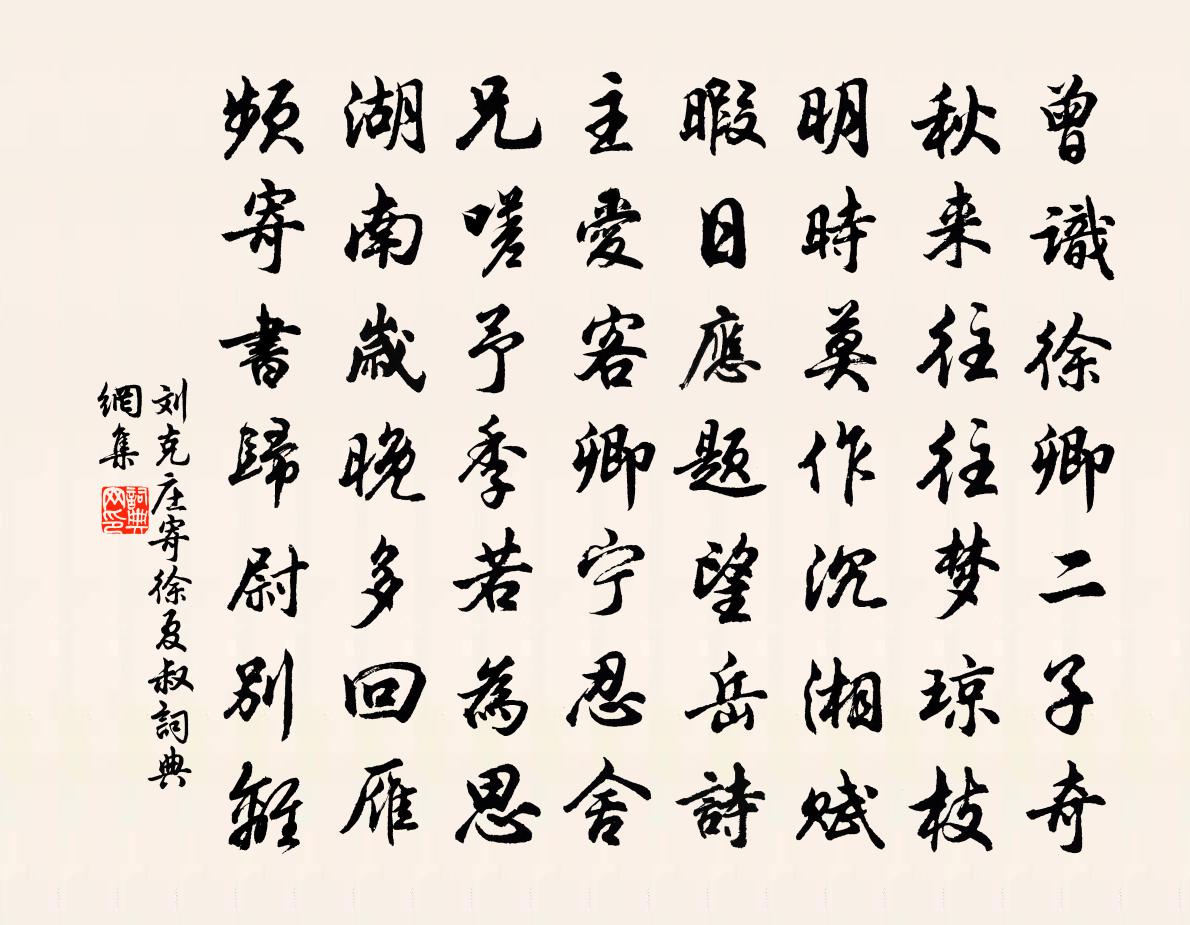 曾識徐卿二子奇
秋来往往梦琼枝
明時莫作沉湘赋
暇日應题望岳詩
主愛客卿宁忍舍
兄嗟予季若為思
湖南歲晚多回雁
频寄書歸尉别離
刘克庄寄徐复叔詞典
網集
詞典网印